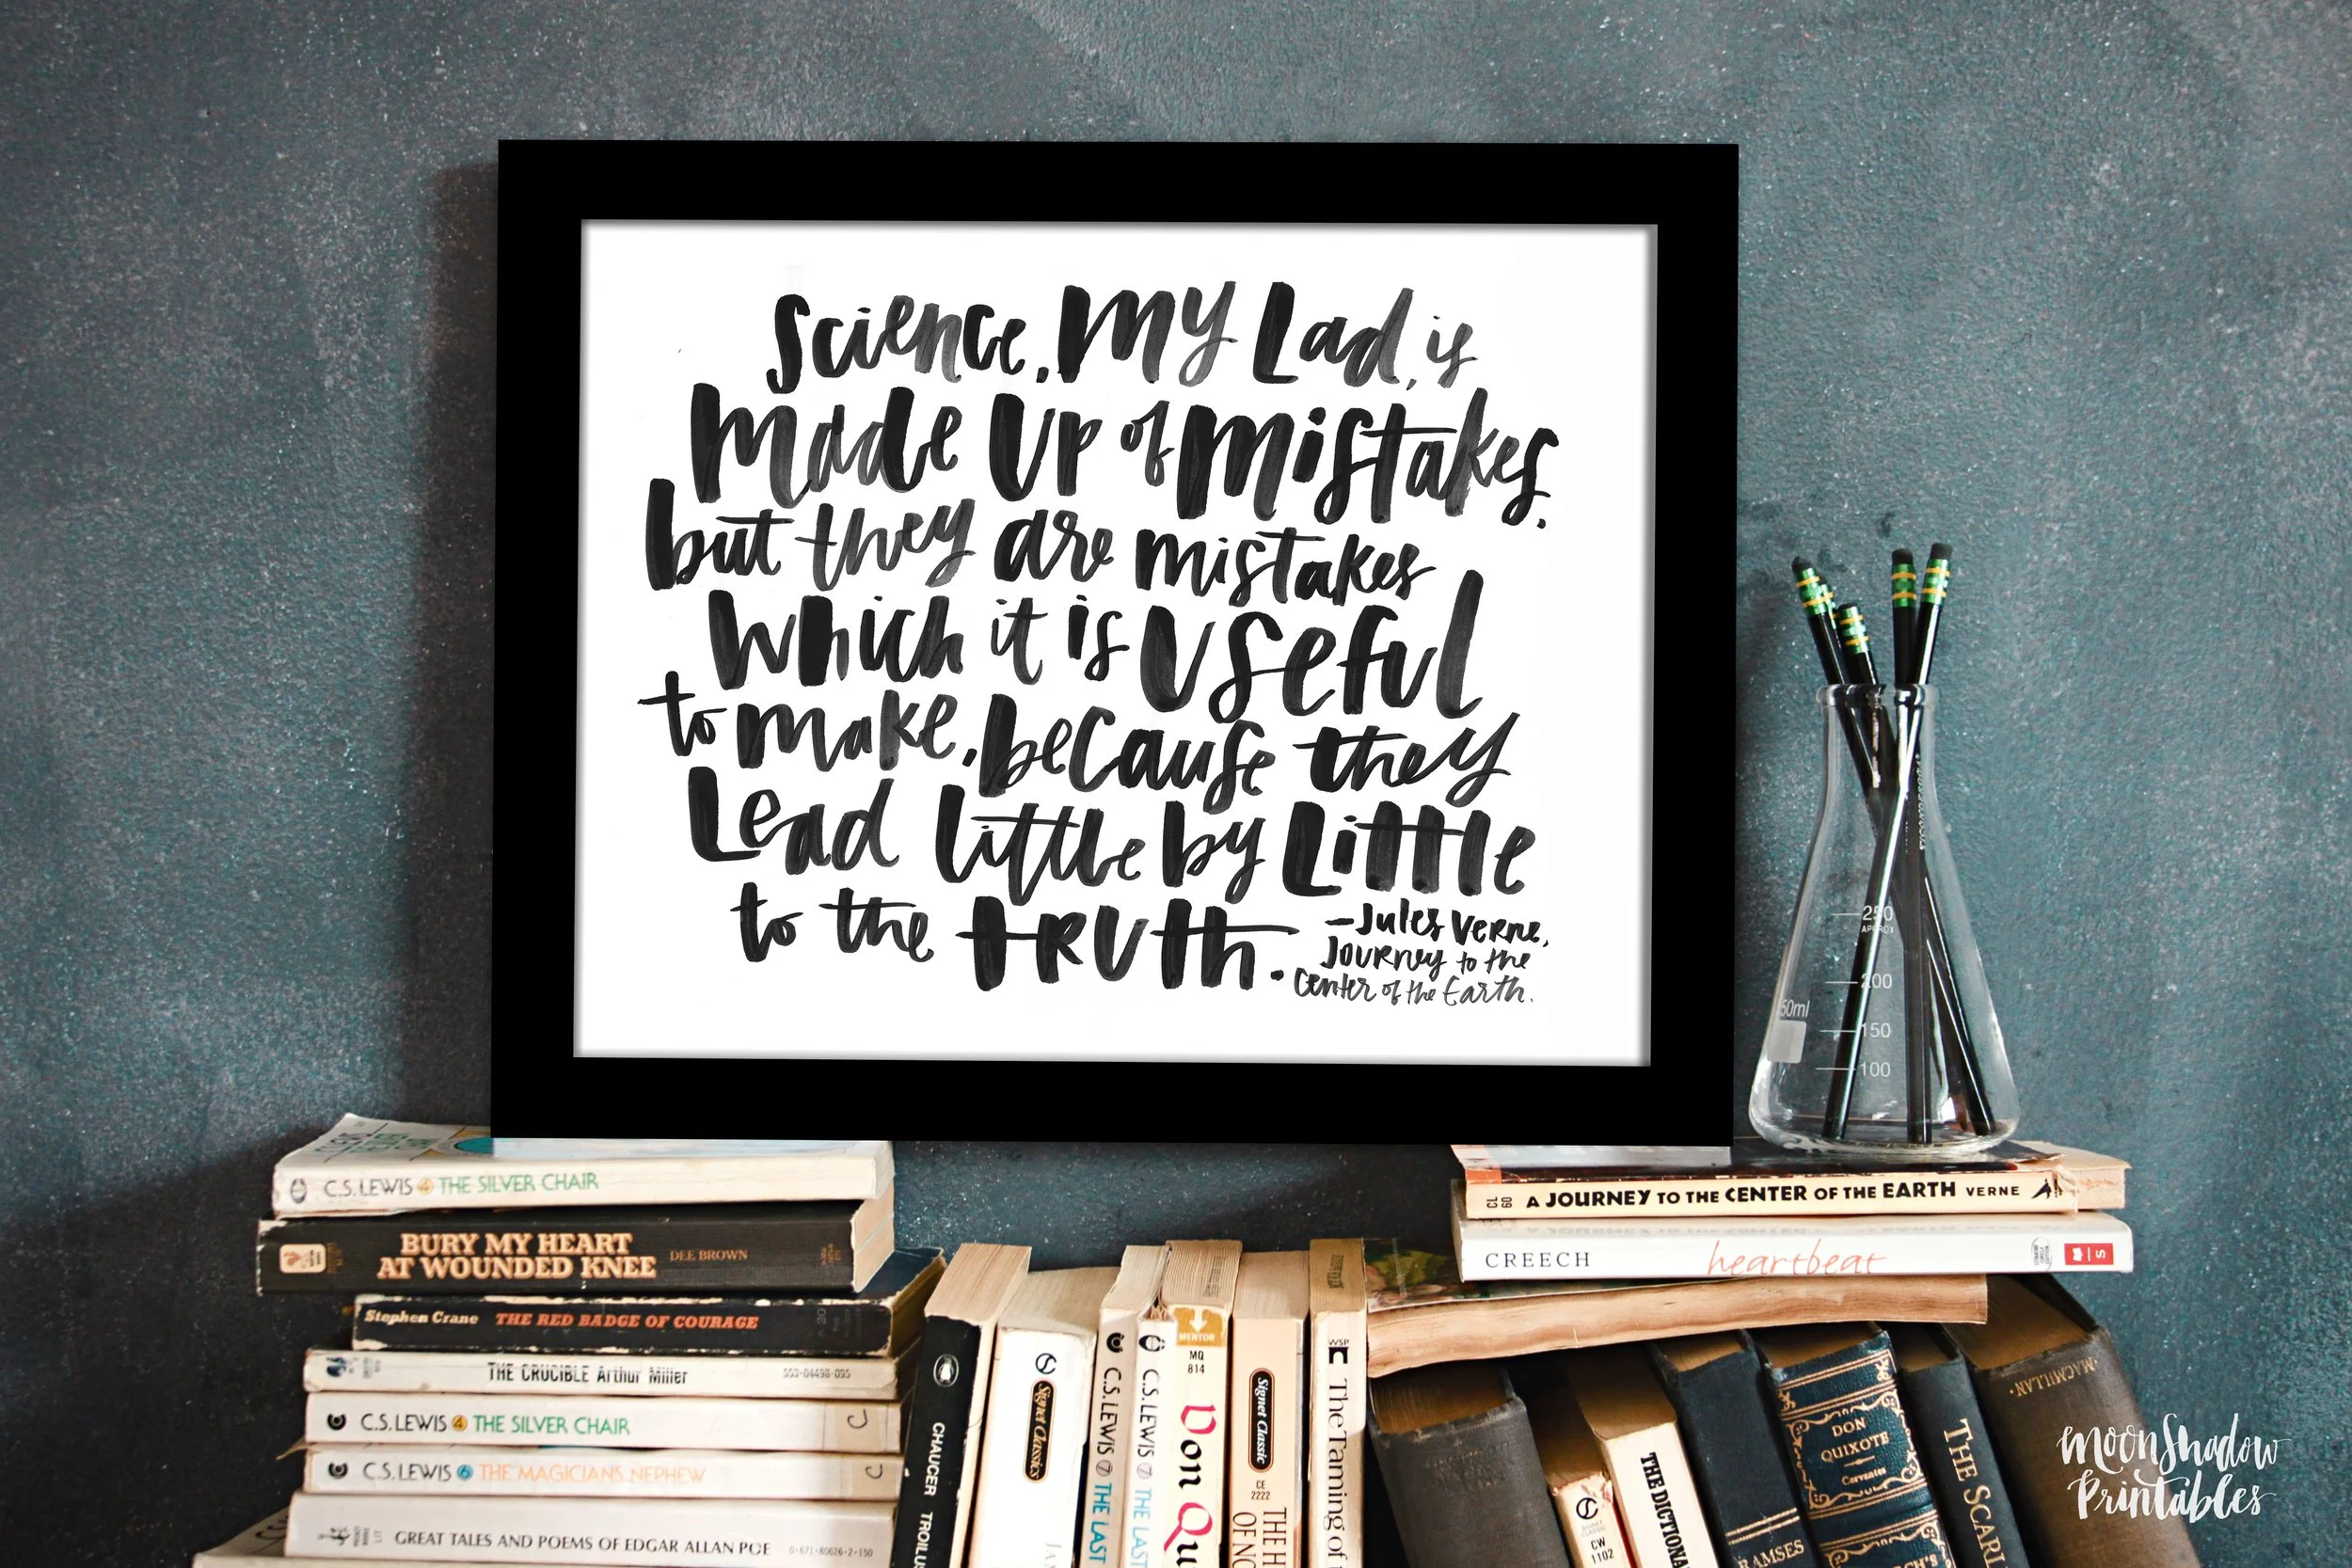 Science, My Lad, is
Made Up of Mistakes,
but they are mistakes
which it is useful
to make, because they
Lead little by Little
to the truth.
—Jules Verne,
Journey to the
Center of the Earth.
250
APPROX
200
50ml
150
100
C.S. LEWIS 4 THE SILVER CHAIR
BURY MY HEART
AT WOUNDED KNEE
DEE BROWN
Stephen Crane THE RED BADGE OF COURAGE
THE CRUCIBLE Arthur Miller
C.S. LEWIS 4 THE SILVER CHAIR
C.S. LEWIS 6 THE MAGICIAN'S NEPHEW
GREAT TALES AND POEMS OF EDGAR ALLAN POE 0-671-80626-2-150
CHAUCER TROILU
Signet Classics
C.S. LEWIS 7 THE LAST
C.S. LEWIS 7 THE LAST
MENTOR
MQ
814
Don Qu
Signet Classic
CE
2222
THE H
OF NO
WSP
The Taming of
CL
60
A JOURNEY TO THE CENTER OF THE EARTH VERNE
CREECH heartbeat
SIGNET
CLASSIC
CW
1102
THE DICTIONA
RAMSES
DON
QUIXOTE
Cervantes
THE SCARL
MACMILLAN
Moonshadow
Printables